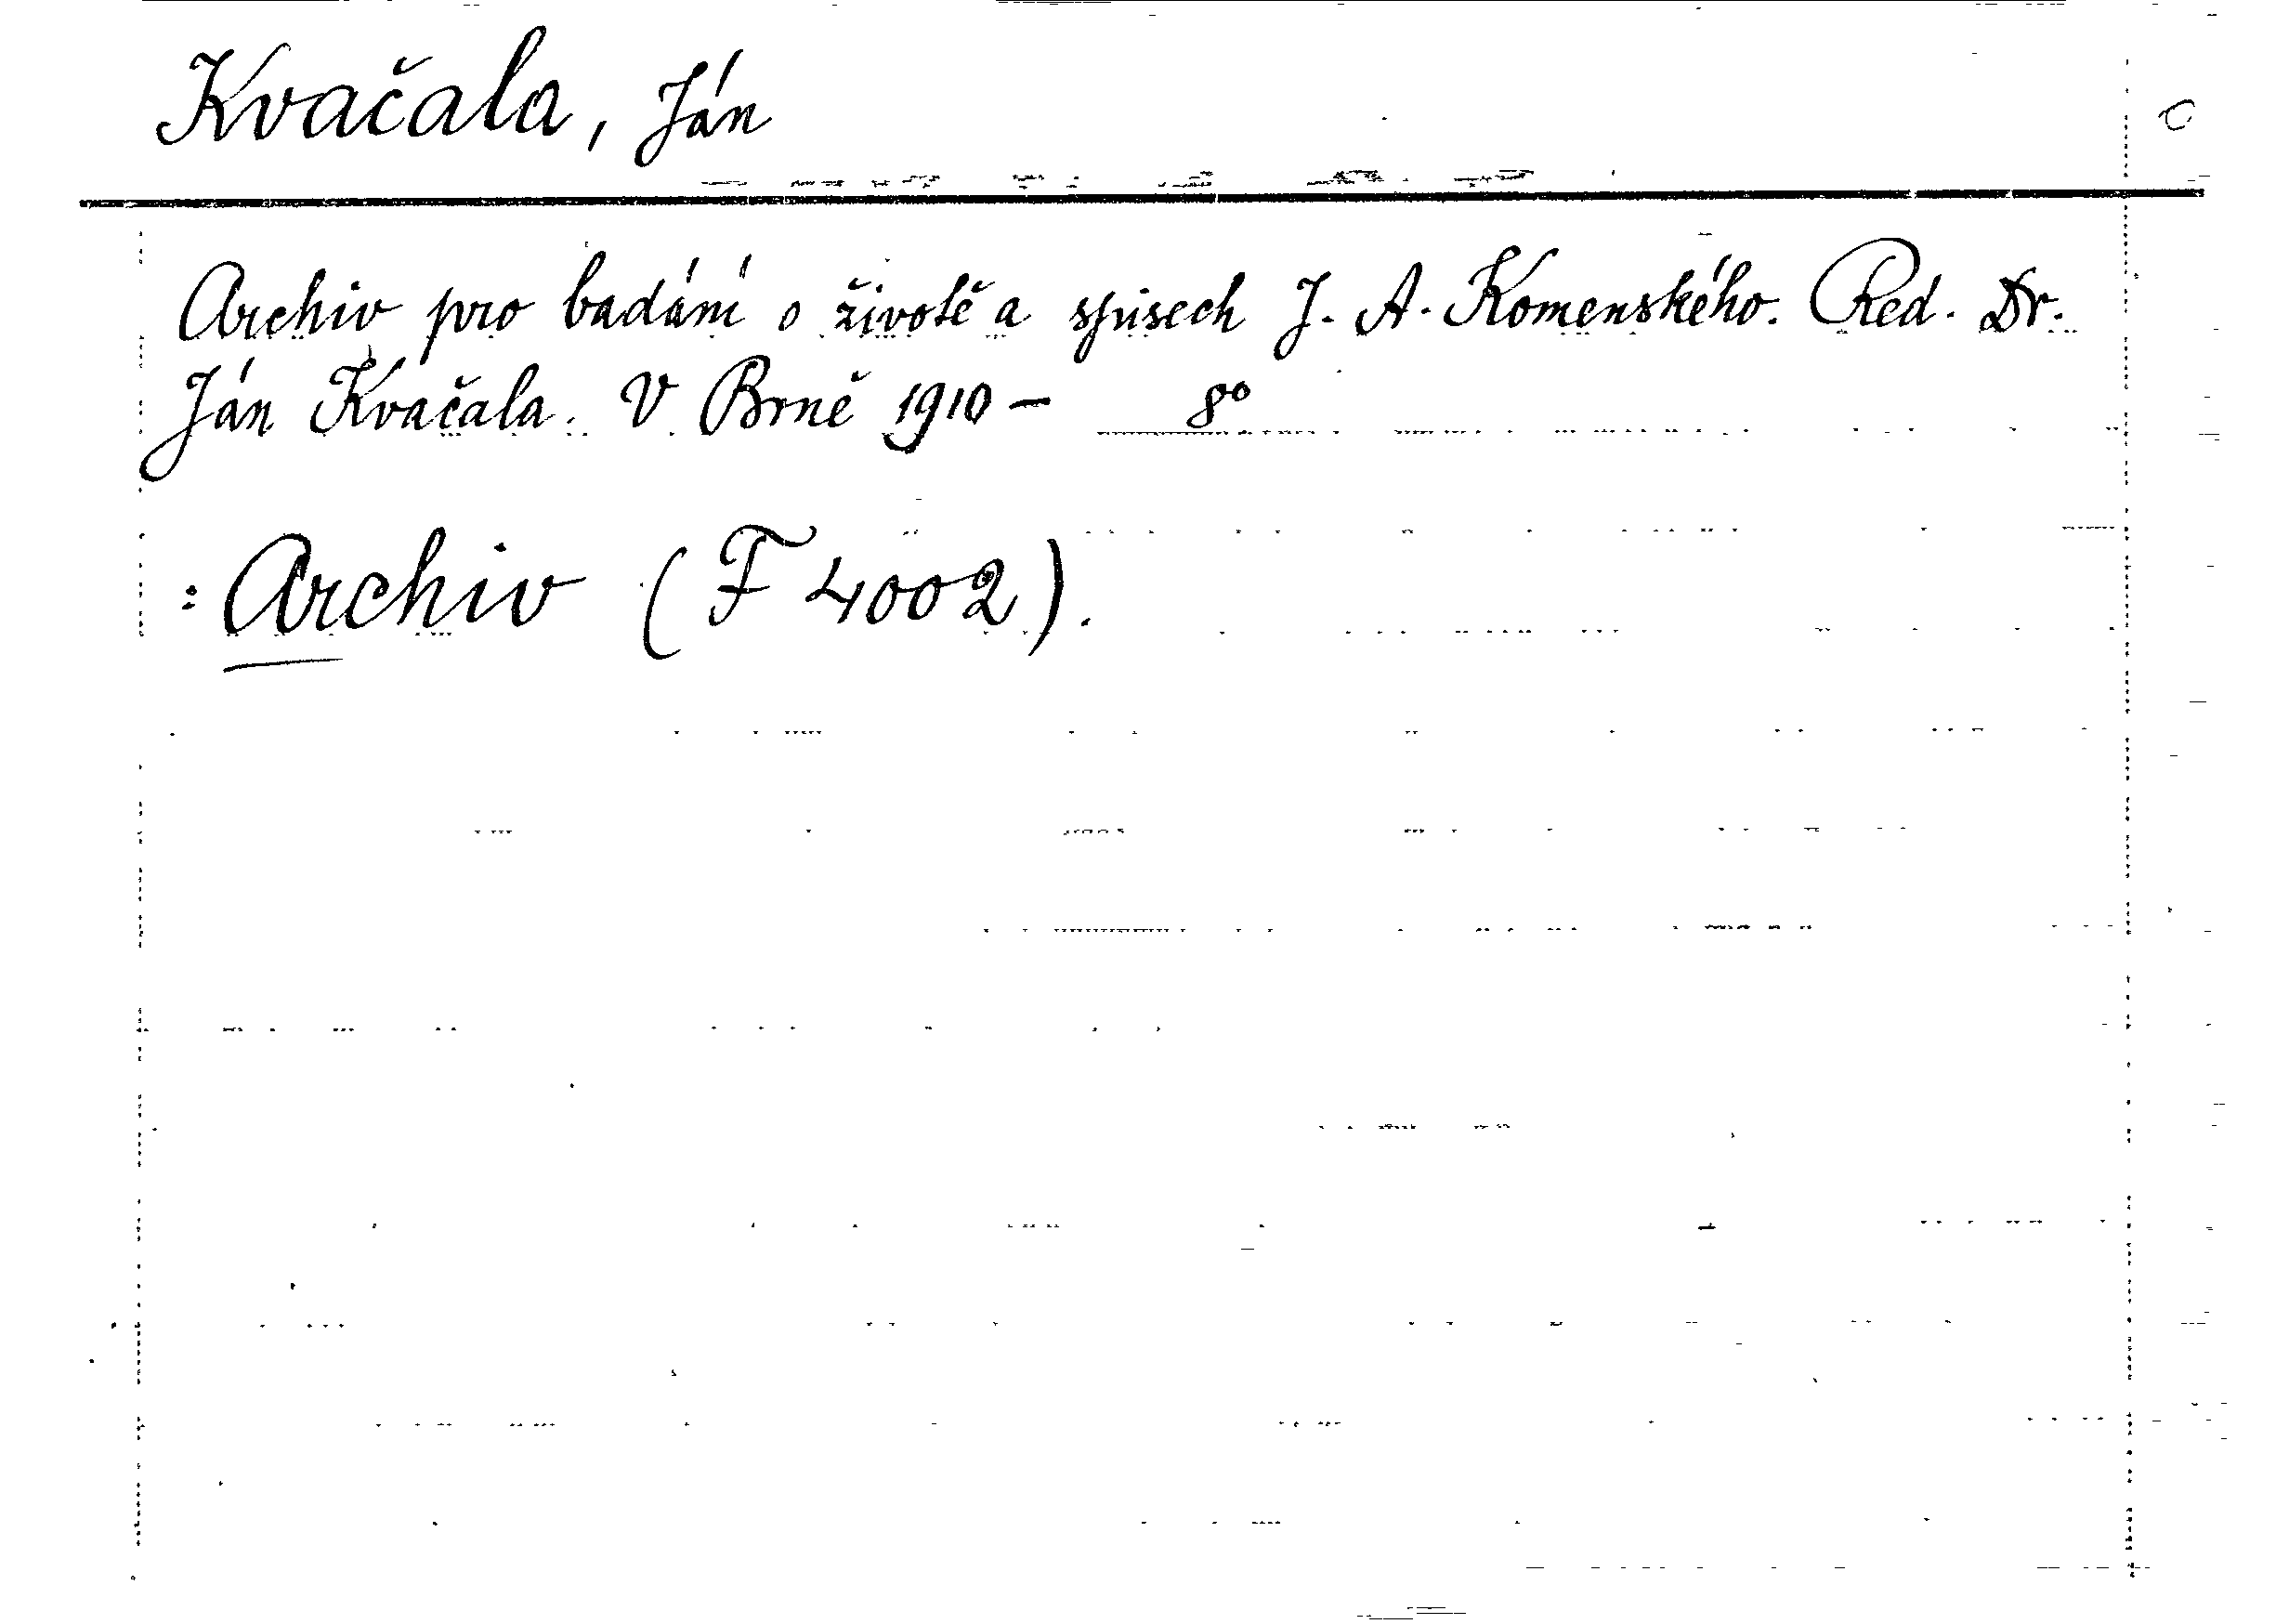 Kvačala, Ján
C
Archiv pro badání o životě a spisech J. A. Komenského. Red. Dr.
Ján Kvačala. V Brně 1910 – 8°
: Archiv (F 4002).